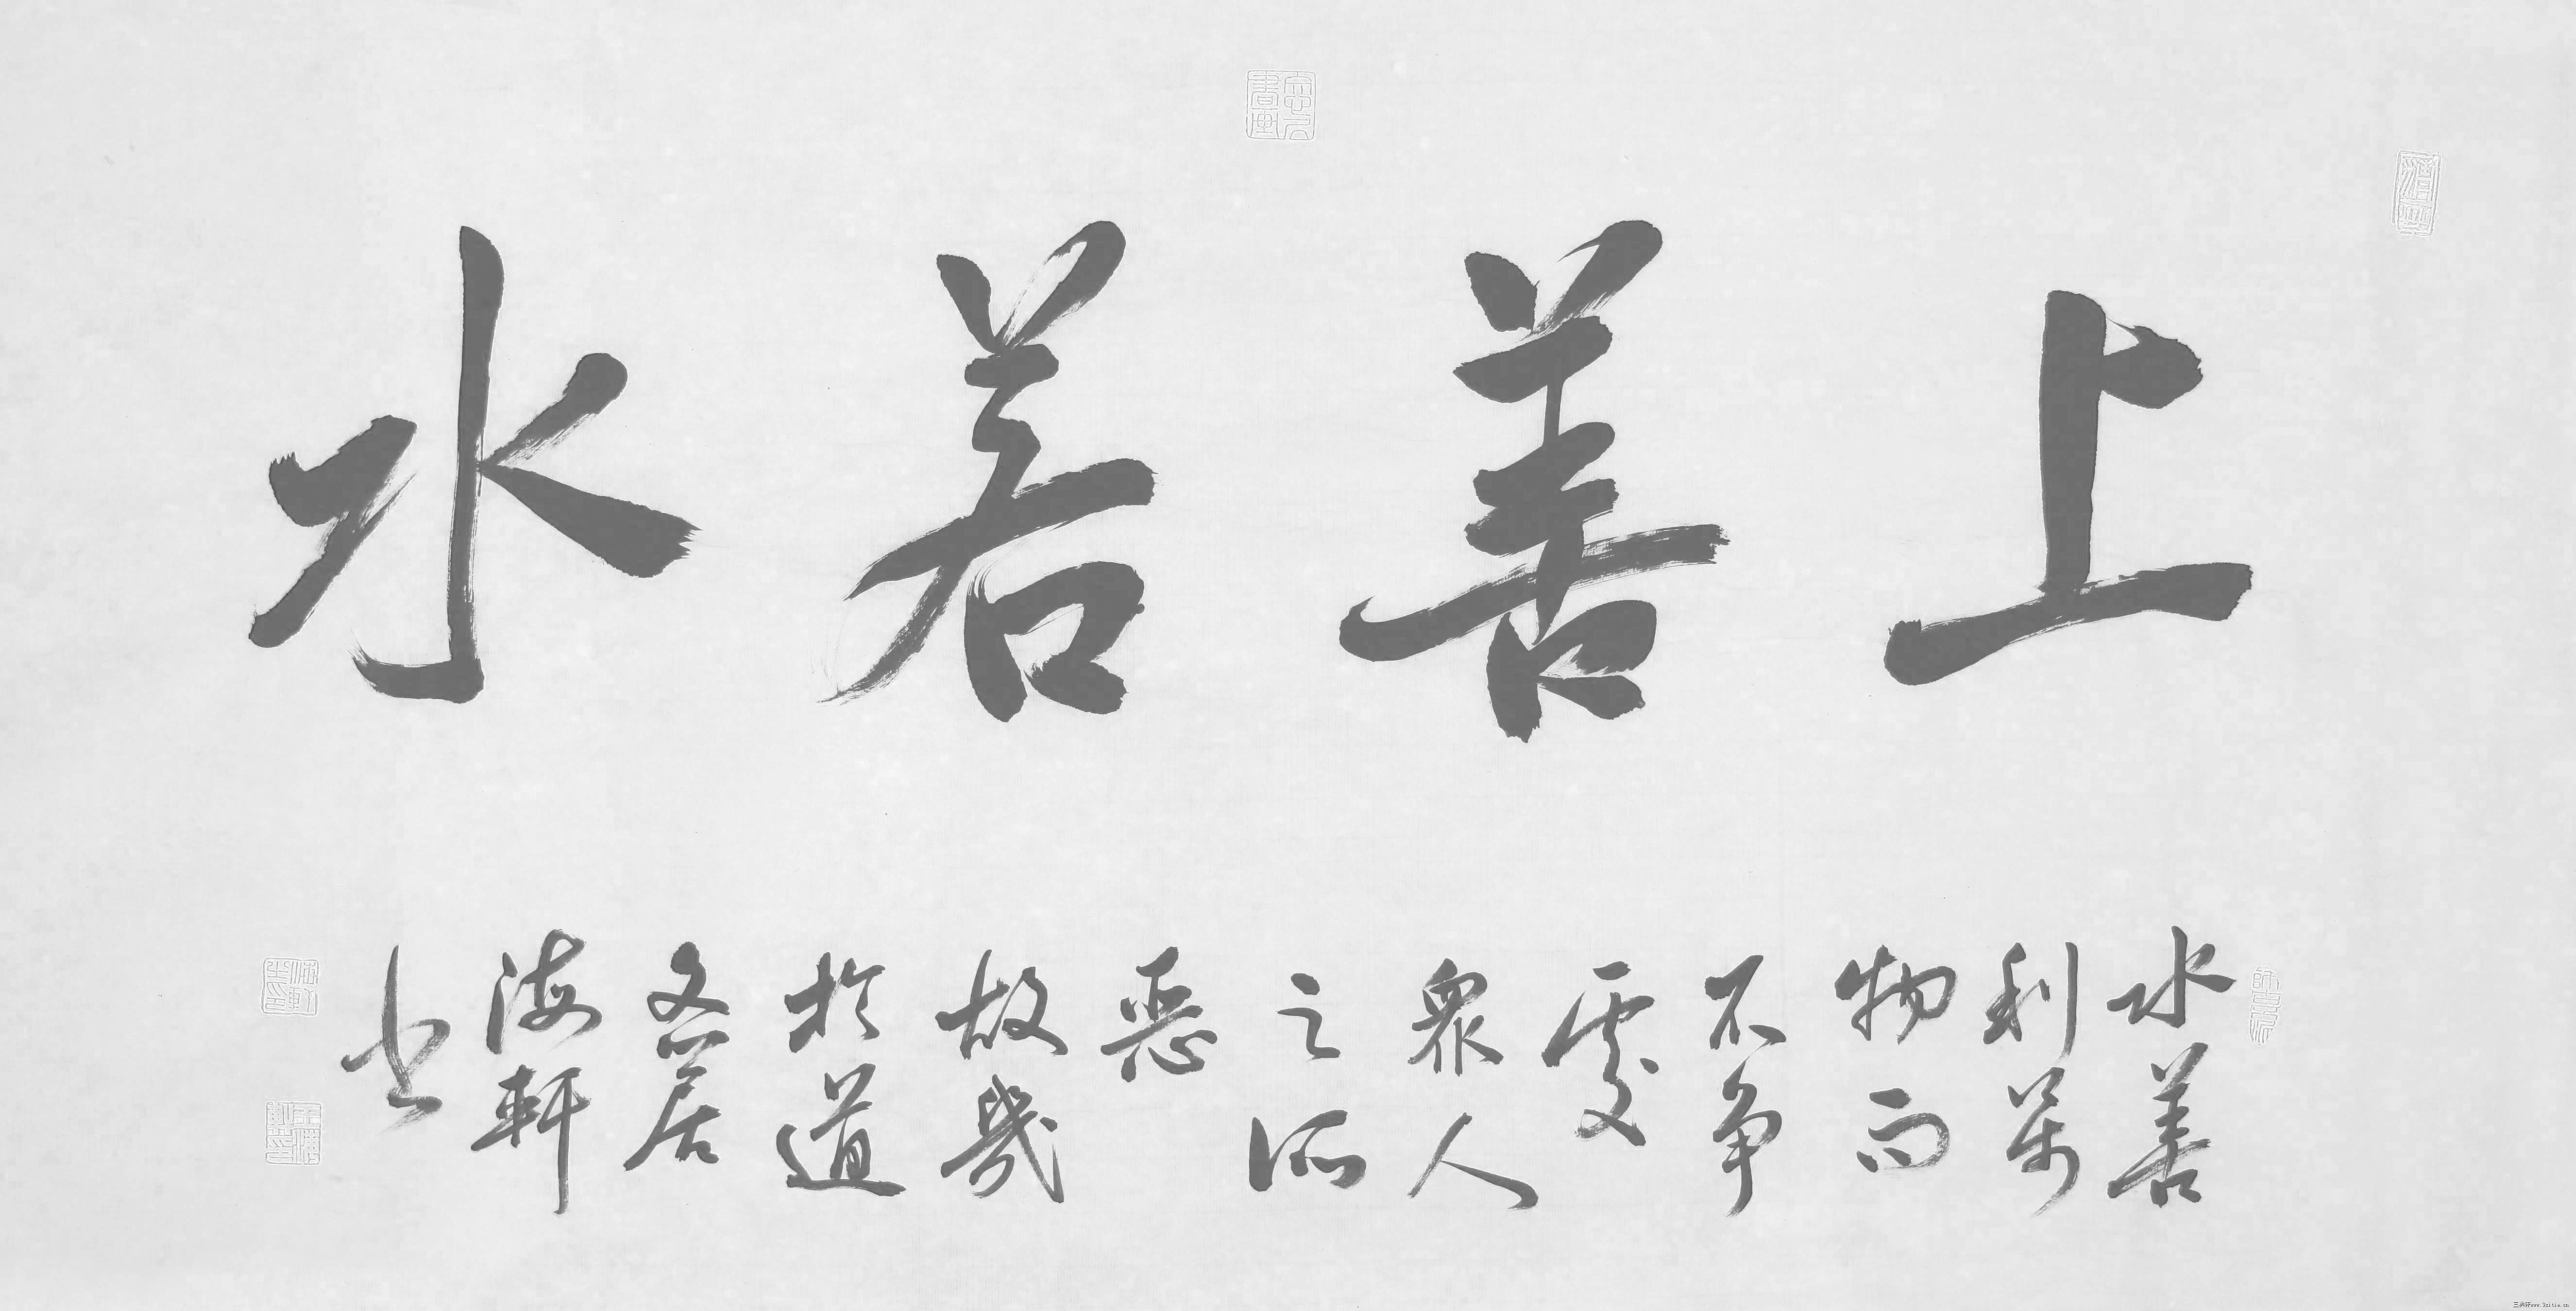 上善若水
水善
利萬
物而
不争
處
衆人
之所
惡
故幾
於道
居
海軒
书
www.3zitie.cn